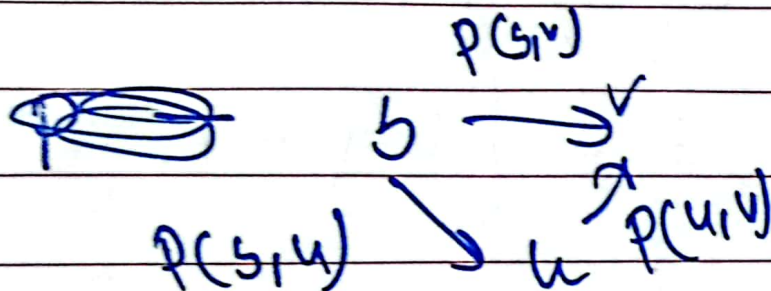 P(s,v)
s → v
P(s,u) u P(u,v)